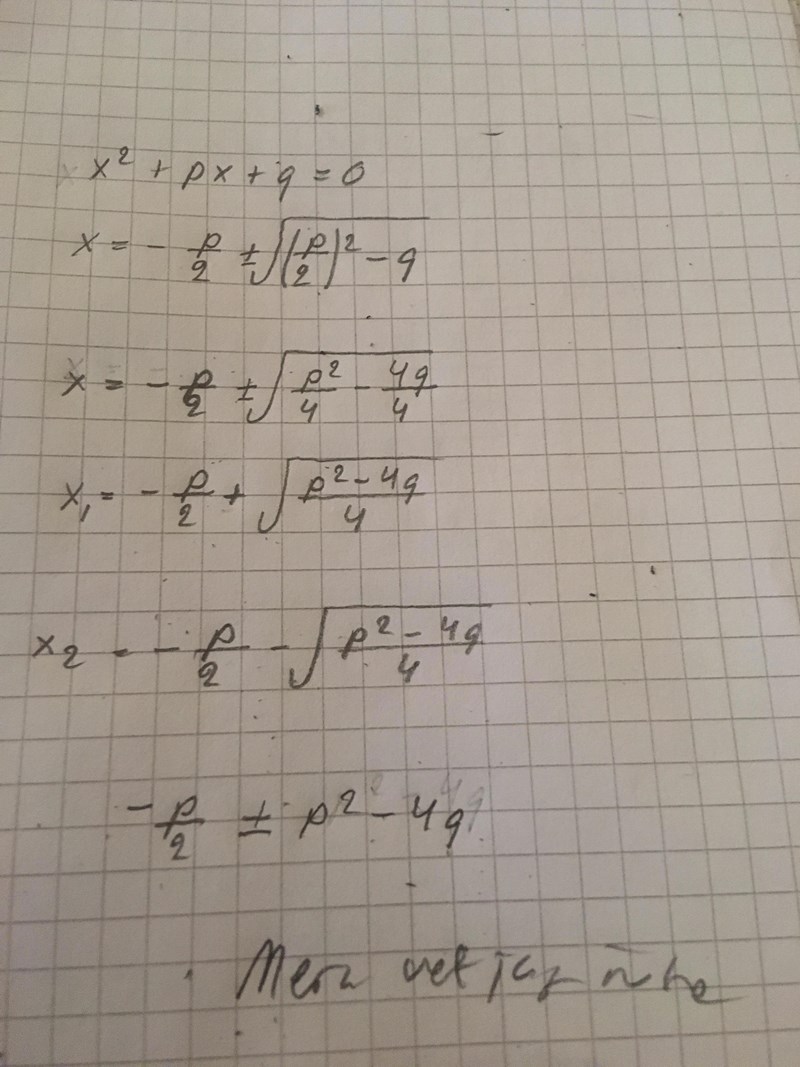 x² + px + q = 0
x = - p/2 ± √((p/2)² - q)
x = - p/2 ± √(p²/4 - 4q/4)
x₁ = - p/2 + √((p² - 4q)/4)
x₂ = - p/2 - √((p² - 4q)/4)
- p/2 ± p² - 4q
Mera vet jag inte